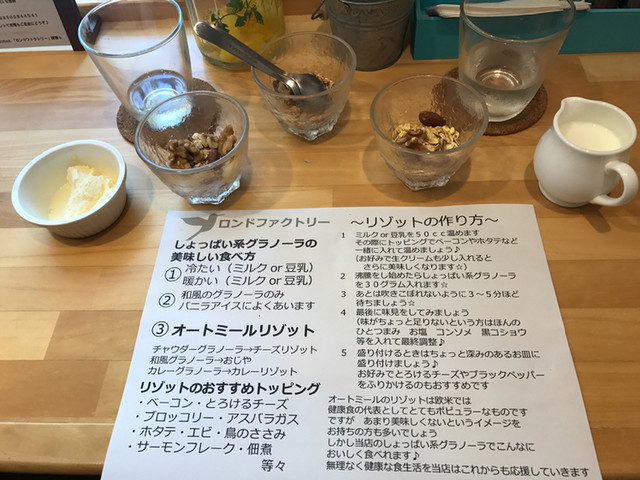 ロンドファクトリー
しょっぱい系グラノーラの
美味しい食べ方
① 冷たい（ミルク or 豆乳）
暖かい（ミルク or 豆乳）
② 和風のグラノーラのみ
バニラアイスによくあいます
③ オートミールリゾット
チャウダーグラノーラ→チーズリゾット
和風グラノーラ→おじや
カレーグラノーラ→カレーリゾット
リゾットのおすすめトッピング
・ベーコン・とろけるチーズ
・ブロッコリー・アスパラガス
・ホタテ・エビ・鳥のささみ
・サーモンフレーク・佃煮
等々
～リゾットの作り方～
１ ミルク or 豆乳を５０ｃｃ温めます
その際にトッピングでベーコンやホタテなど
一緒に入れて温めましょう♪
（お好みで生クリームも少し入れると
さらに美味しくなります☆）
２ 沸騰をし始めたらしょっぱい系グラノーラ
を３０グラム入れます☆
３ あとは吹きこぼれないように３～５分ほど
待ちましょう☆
４ 最後に味見をしてみましょう
（味がちょっと足りないという方はほんの
ひとつまみ お塩 コンソメ 黒コショウ
等を入れて最終調整♪）
５ 盛り付けるときはちょっと深みのあるお皿に
盛り付けましょう♪
お好みでとろけるチーズやブラックペッパー
をふりかけるのもおすすめです
オートミールのリゾットは欧米では
健康食の代表としてとてもポピュラーなものです
ですが あまり美味しくないというイメージを
お持ちの方も多いでしょう
しかし当店のしょっぱい系グラノーラでこんなに
おいしく食べれます！
無理なく健康な食生活を当店はこれからも応援していきます